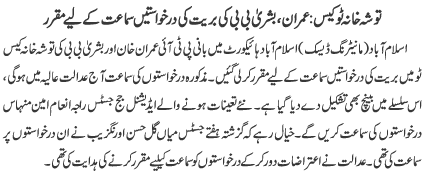 توشہ خانہ ٹو کیس: عمران، بشریٰ بی بی کی بریت کی درخواستیں سماعت کے لیے مقرر
اسلام آباد (مانیٹرنگ ڈیسک) اسلام آباد ہائیکورٹ میں بانی پی ٹی آئی عمران خان اور بشریٰ بی بی کی توشہ خانہ کیس
ٹو میں بریت کی درخواستیں سماعت کے لیے مقرر کر لی گئیں۔ مذکورہ درخواستوں کی سماعت آج عدالت عالیہ میں ہو گی،
اس سلسلے میں بینچ بھی تشکیل دے دیا گیا ہے۔ نئے تعینات ہونے والے ایڈیشنل جج جسٹس راجہ انعام امین منہاس
درخواستوں کی سماعت کریں گے۔ خیال رہے کہ گزشتہ ہفتے جسٹس میاں گل حسن اورنگزیب نے ان درخواستوں پر
سماعت کی تھی۔ عدالت نے اعتراضات دور کر کے درخواستوں کو سماعت کیلئے مقرر کرنے کی ہدایت کی تھی۔